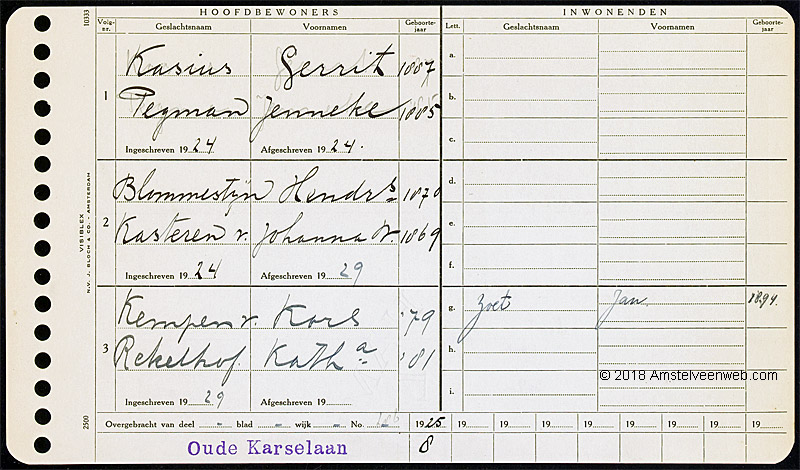 HOOFDBEWONERS INWONENDEN
Volg-nr. Geslachtsnaam Voornamen Geboorte-jaar Lett. Geslachtsnaam Voornamen Geboorte-jaar
10333
1
Kasius Gerrit 1887 a.
Pegman Jenneke 1885 b.
c.
Ingeschreven 1924 Afgeschreven 1924.
2
Blommestijn Hendrs 1870 d.
Kasteren v. Johanna W. 1869 e.
Ingeschreven 1924 Afgeschreven 1929 f.
VISIBLEX
N.V. J. BLOCH & CO. - AMSTERDAM
3
Kempen v. Kors '79 g. Zoet Jan 1894
Rekelhof Katha '81 h.
© 2018 Amstelveenweb.com
Ingeschreven 1929 Afgeschreven 19 i.
2500
Overgebracht van deel - blad - wijk - No. 1925 19 19 19 19 19 19 19 19
Oude Karselaan 8